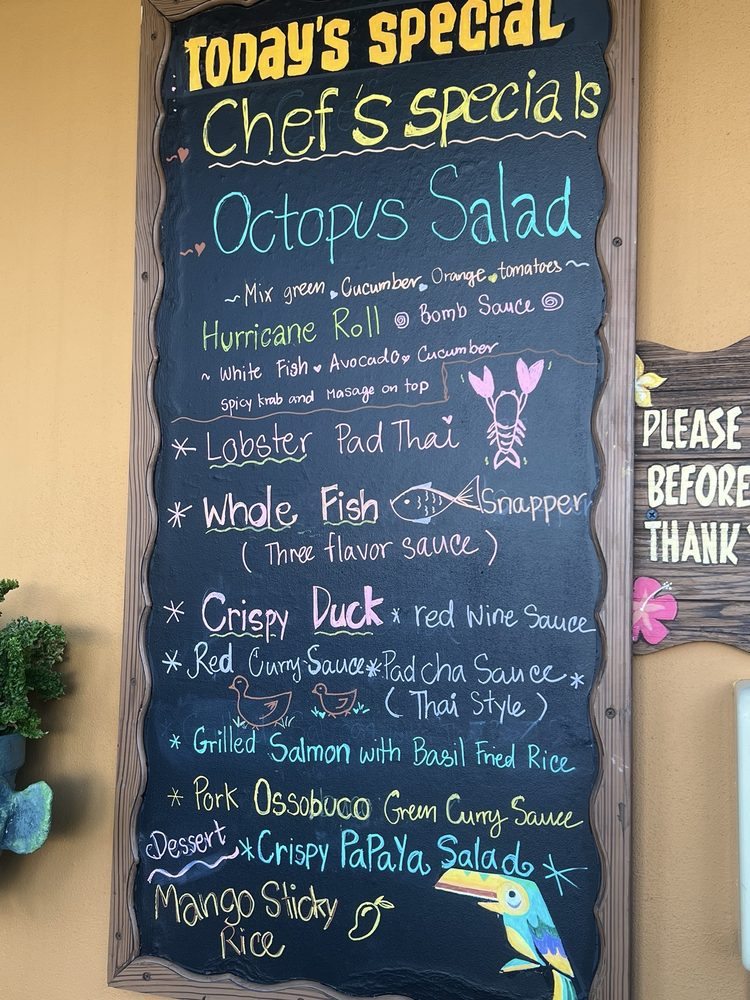 TODAY'S SPECIAL
Chef's specials
Octopus Salad
~ Mix green Cucumber Orange tomatoes ~
Hurricane Roll @ Bomb Sauce @
~ White Fish Avocado Cucumber
Spicy Krab and Masago on top
* Lobster Pad Thai
* Whole Fish Snapper
( Three flavor sauce )
* Crispy Duck * red Wine Sauce
* Red Curry Sauce * Pad cha Sauce *
( Thai Style )
* Grilled Salmon with Basil Fried Rice
* Pork Ossobuco Green Curry Sauce
Dessert * Crispy PaPaYa Salad *
Mango Sticky
Rice
PLEASE
BEFORE
THANK